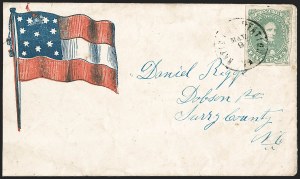 MAY
Daniel Rigg
Dobson Po
Surry County
N.C.